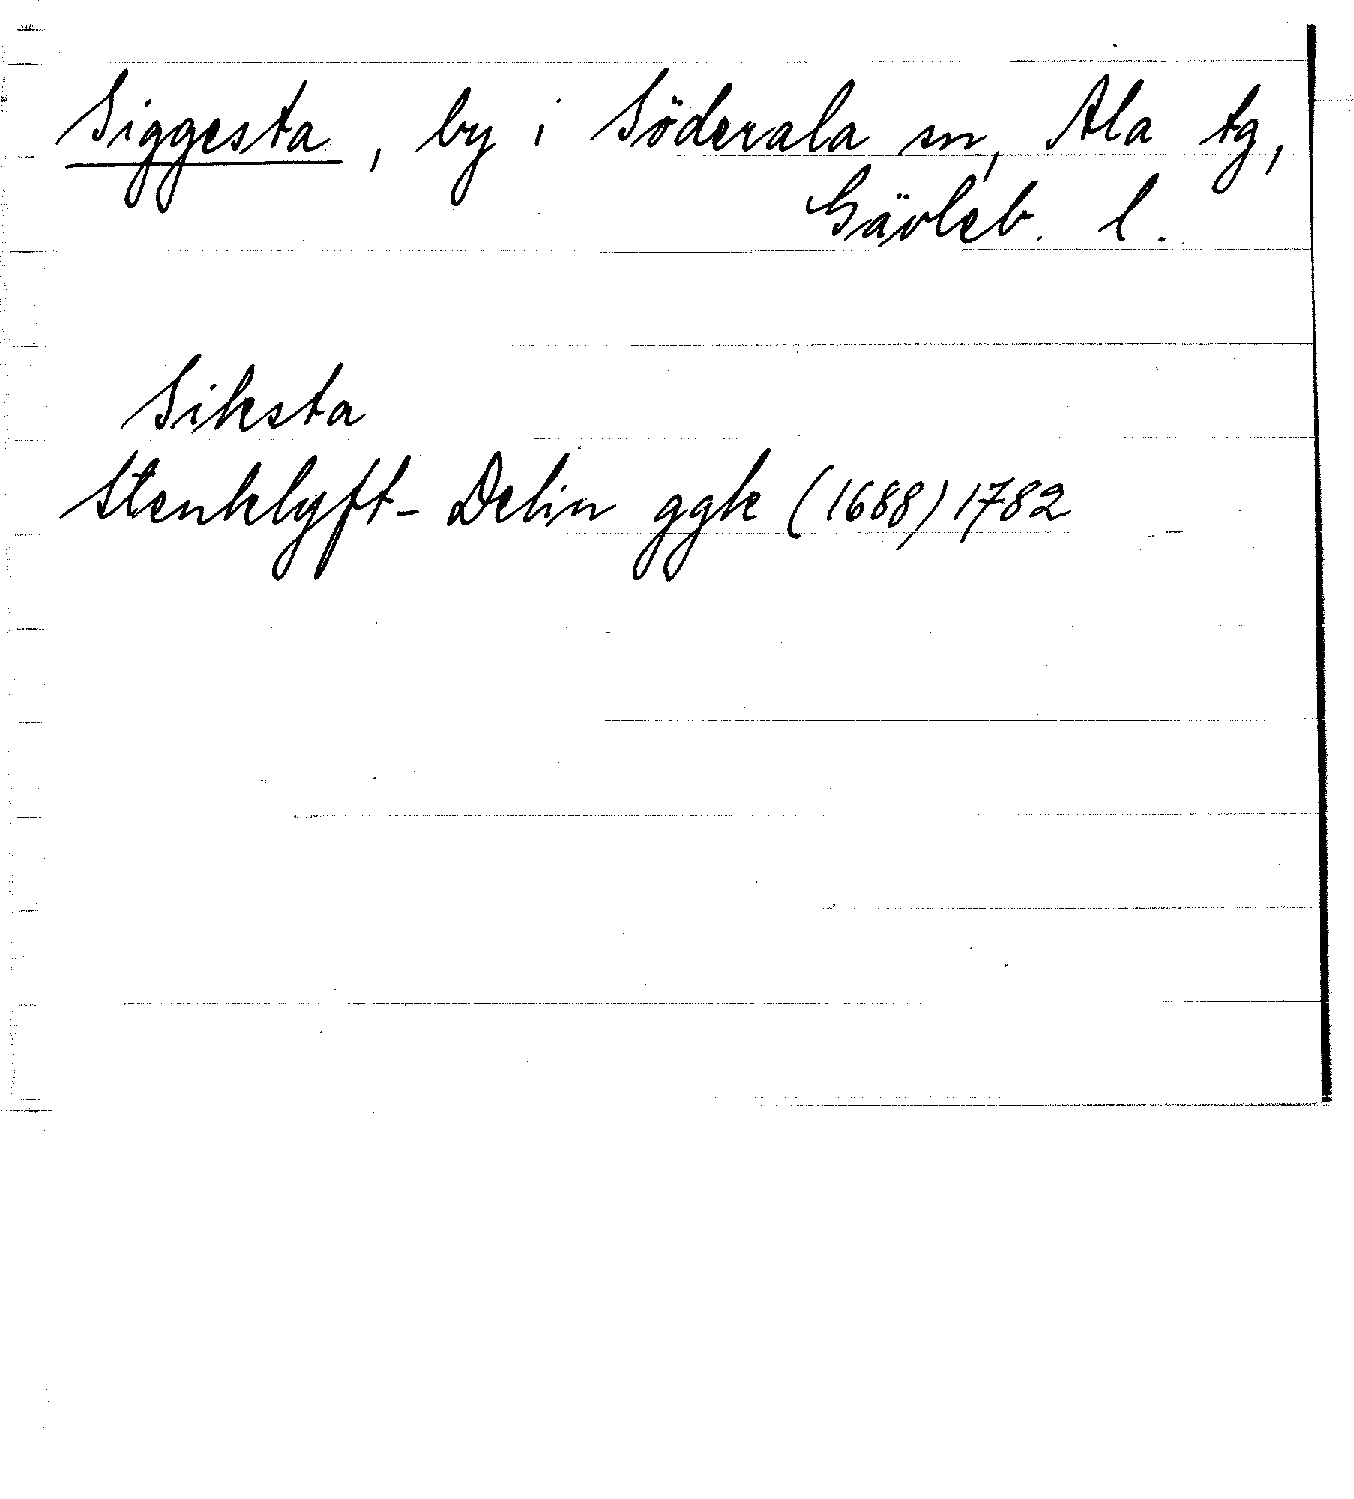 Siggesta, by i Söderala sn, Ala tg,
Gävleb. l.
Siksta
Stenklyft-Delin ggk (1688) 1782